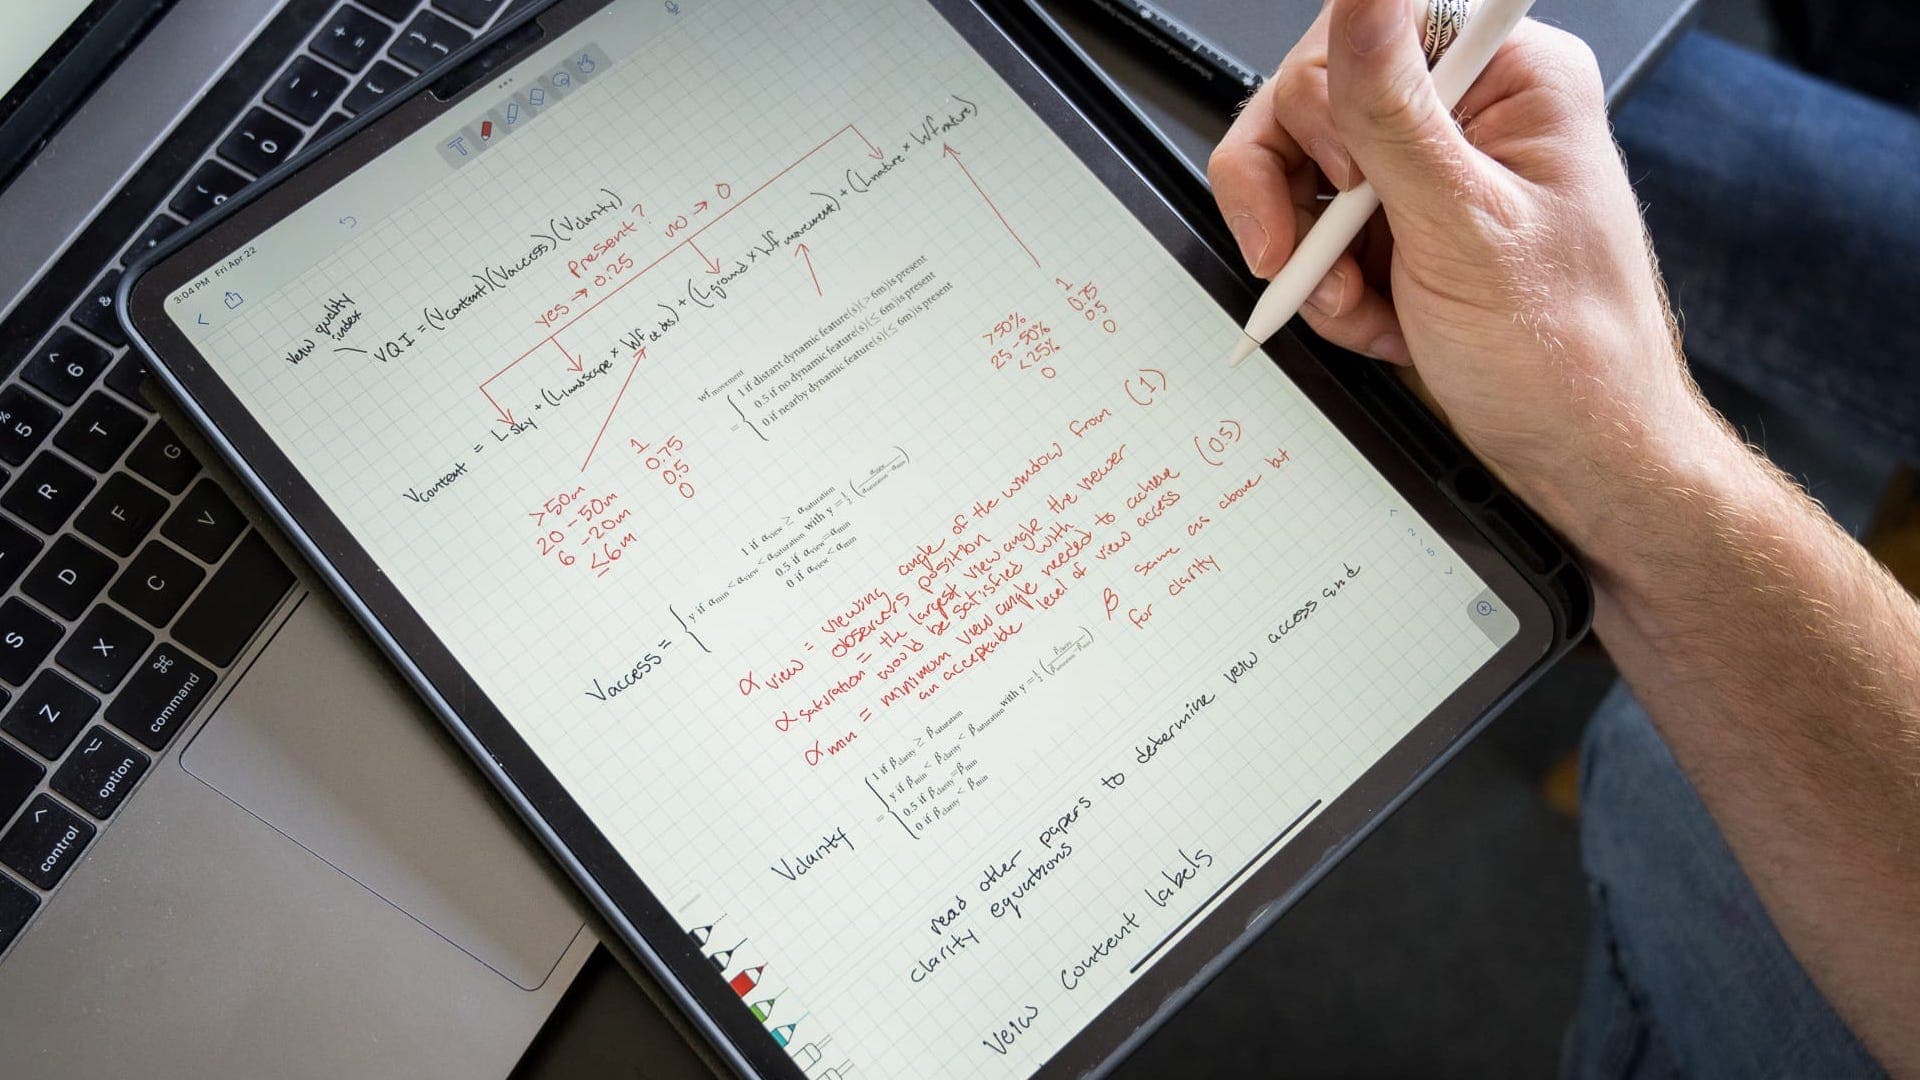 3:04 PM Fri Apr 22
verw quality
index
VQI = (Vcontent)(Vaccess)(Vclarity)
Present?
yes → 0.25 no → 0
Vcontent = Lsky + (Llandscape × Wf) + (Lground × Wf movement) + (Lnature × Wf nature)
>50m 1
20-50m 0.75
6-20m 0.5
≤6m 0
wf movement
= { 1 if distant dynamic feature(s)(>6m)is present
0.5 if no dynamic feature(s)(≤ 6m)is present
0 if nearby dynamic feature(s)(≤ 6m)is present
>50% 1
25-50% 0.75
<25% 0.5
0 0
Vaccess = {
1 if αview ≥ αsaturation
y if αmin < αview < αsaturation with y = 1/2
0.5 if αview=αmin
0 if αview < αmin
α view = viewing angle of the window from (1)
observers position
α saturation = the largest view angle the viewer
would be satisfied with
α min = minimum view angle needed to achieve (0.5)
an acceptable level of view access
β same as above but
for clarity
Vclarity = {
1 if βclarity ≥ βsaturation
y if βmin < βclarity < βsaturation with y = 1/2
0.5 if βclarity=βmin
0 if βclarity < βmin
read other papers to determine verw access and
clarity equations
Veiw content labels
2 / 5
&
^ 6
% 5
T
G
R
F
V
D
C
S
X
Z
⌘ command
⌥ option
^ control